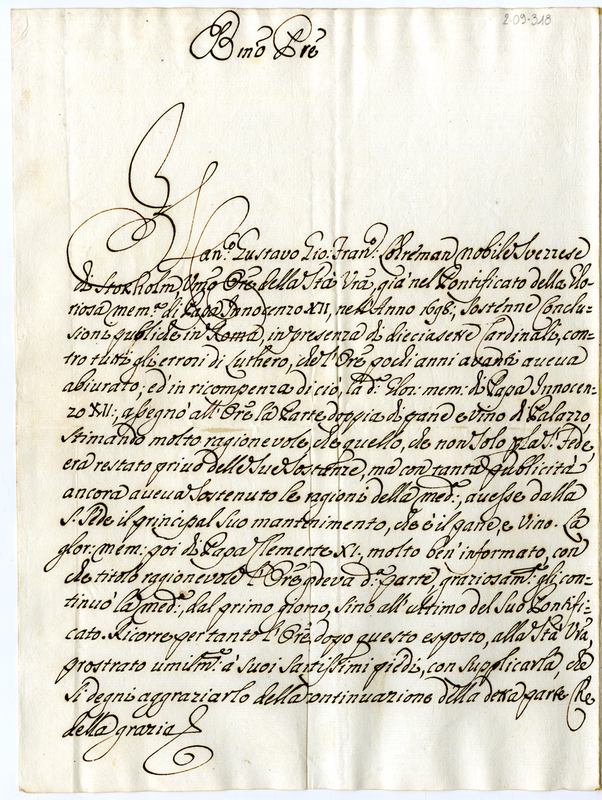 2-09-318
Bmo Pre
Han.o Gustavo Gio: Fran.o Colreman nobile Suezzese
di Stokholm Umo Ore della Sta Vra, già nel Pontificato della Glo-
riosa mem.e di Papa Innocenzo XII, nell'Anno 1698; Sostenne Conclu-
sioni publiche in Roma, in presenza di dieciasette Cardinali, con-
tro tutti gli errori di Luthero, che l'Ore pochi anni avanti aveva
abiurato, ed in ricompenza di ciò, la d.a Glor: mem: di Papa Innocen-
zo XII:, assegnò all'Ore la Parte doppia di pane e vino di Palazzo
stimando molto ragionevole, che quello, che non solo p la S. Fede,
era restato privo delle Sue Sostanze, ma con tanta publicità
ancora aveva Sostenuto le ragioni della med.a, avesse dalla
S. Sede il principal suo mantenimento, che è il pane, e vino. La
glor: mem: poi di Papa Clemente XI, molto ben' informato, con
che titolo ragionevole l'Ore godeva d.a parte, graziosam.te gli con-
tinuò la med.a, dal primo giorno, sino all'ultimo del suo Pontifi-
cato. Ricorre pertanto l'Ore, dopo questo esposto, alla Sta Vra,
prostrato umilm.te à suoi Santissimi piedi, con supplicarla, che
si degni aggraziarlo della continuazione della detta parte Che
della grazia